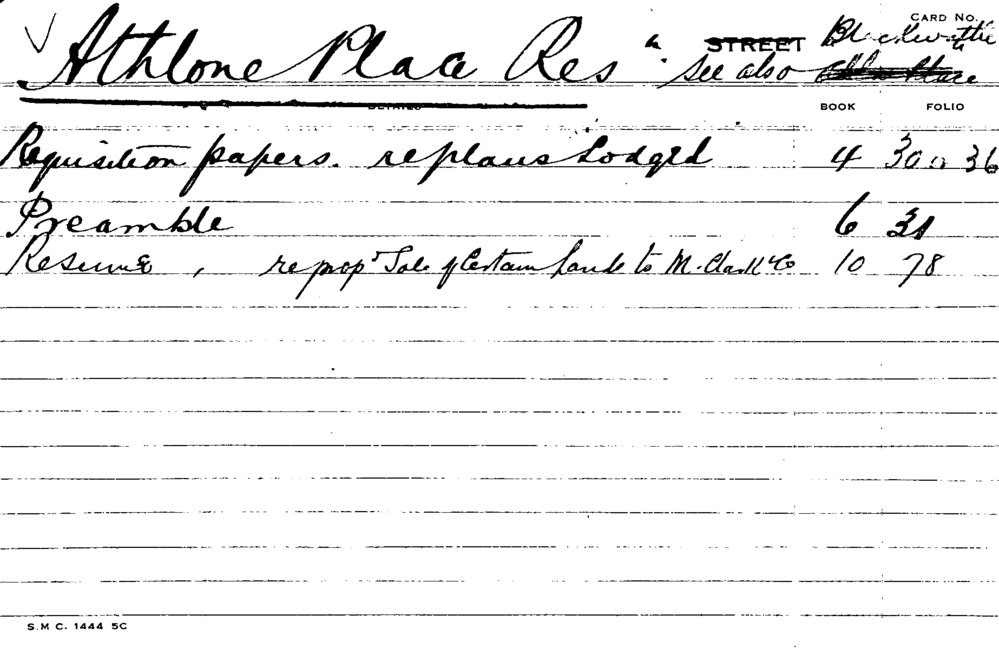 CARD No.
Athlone Place Res " STREET Blackwattle
See also Place
DETAILS BOOK FOLIO
Requisition papers. re plans Lodged 4 30 36
Preamble 6 31
Resume , re prop Sale of Certain Lands to M. Clark & Co 10 78
S.M C. 1444 5C